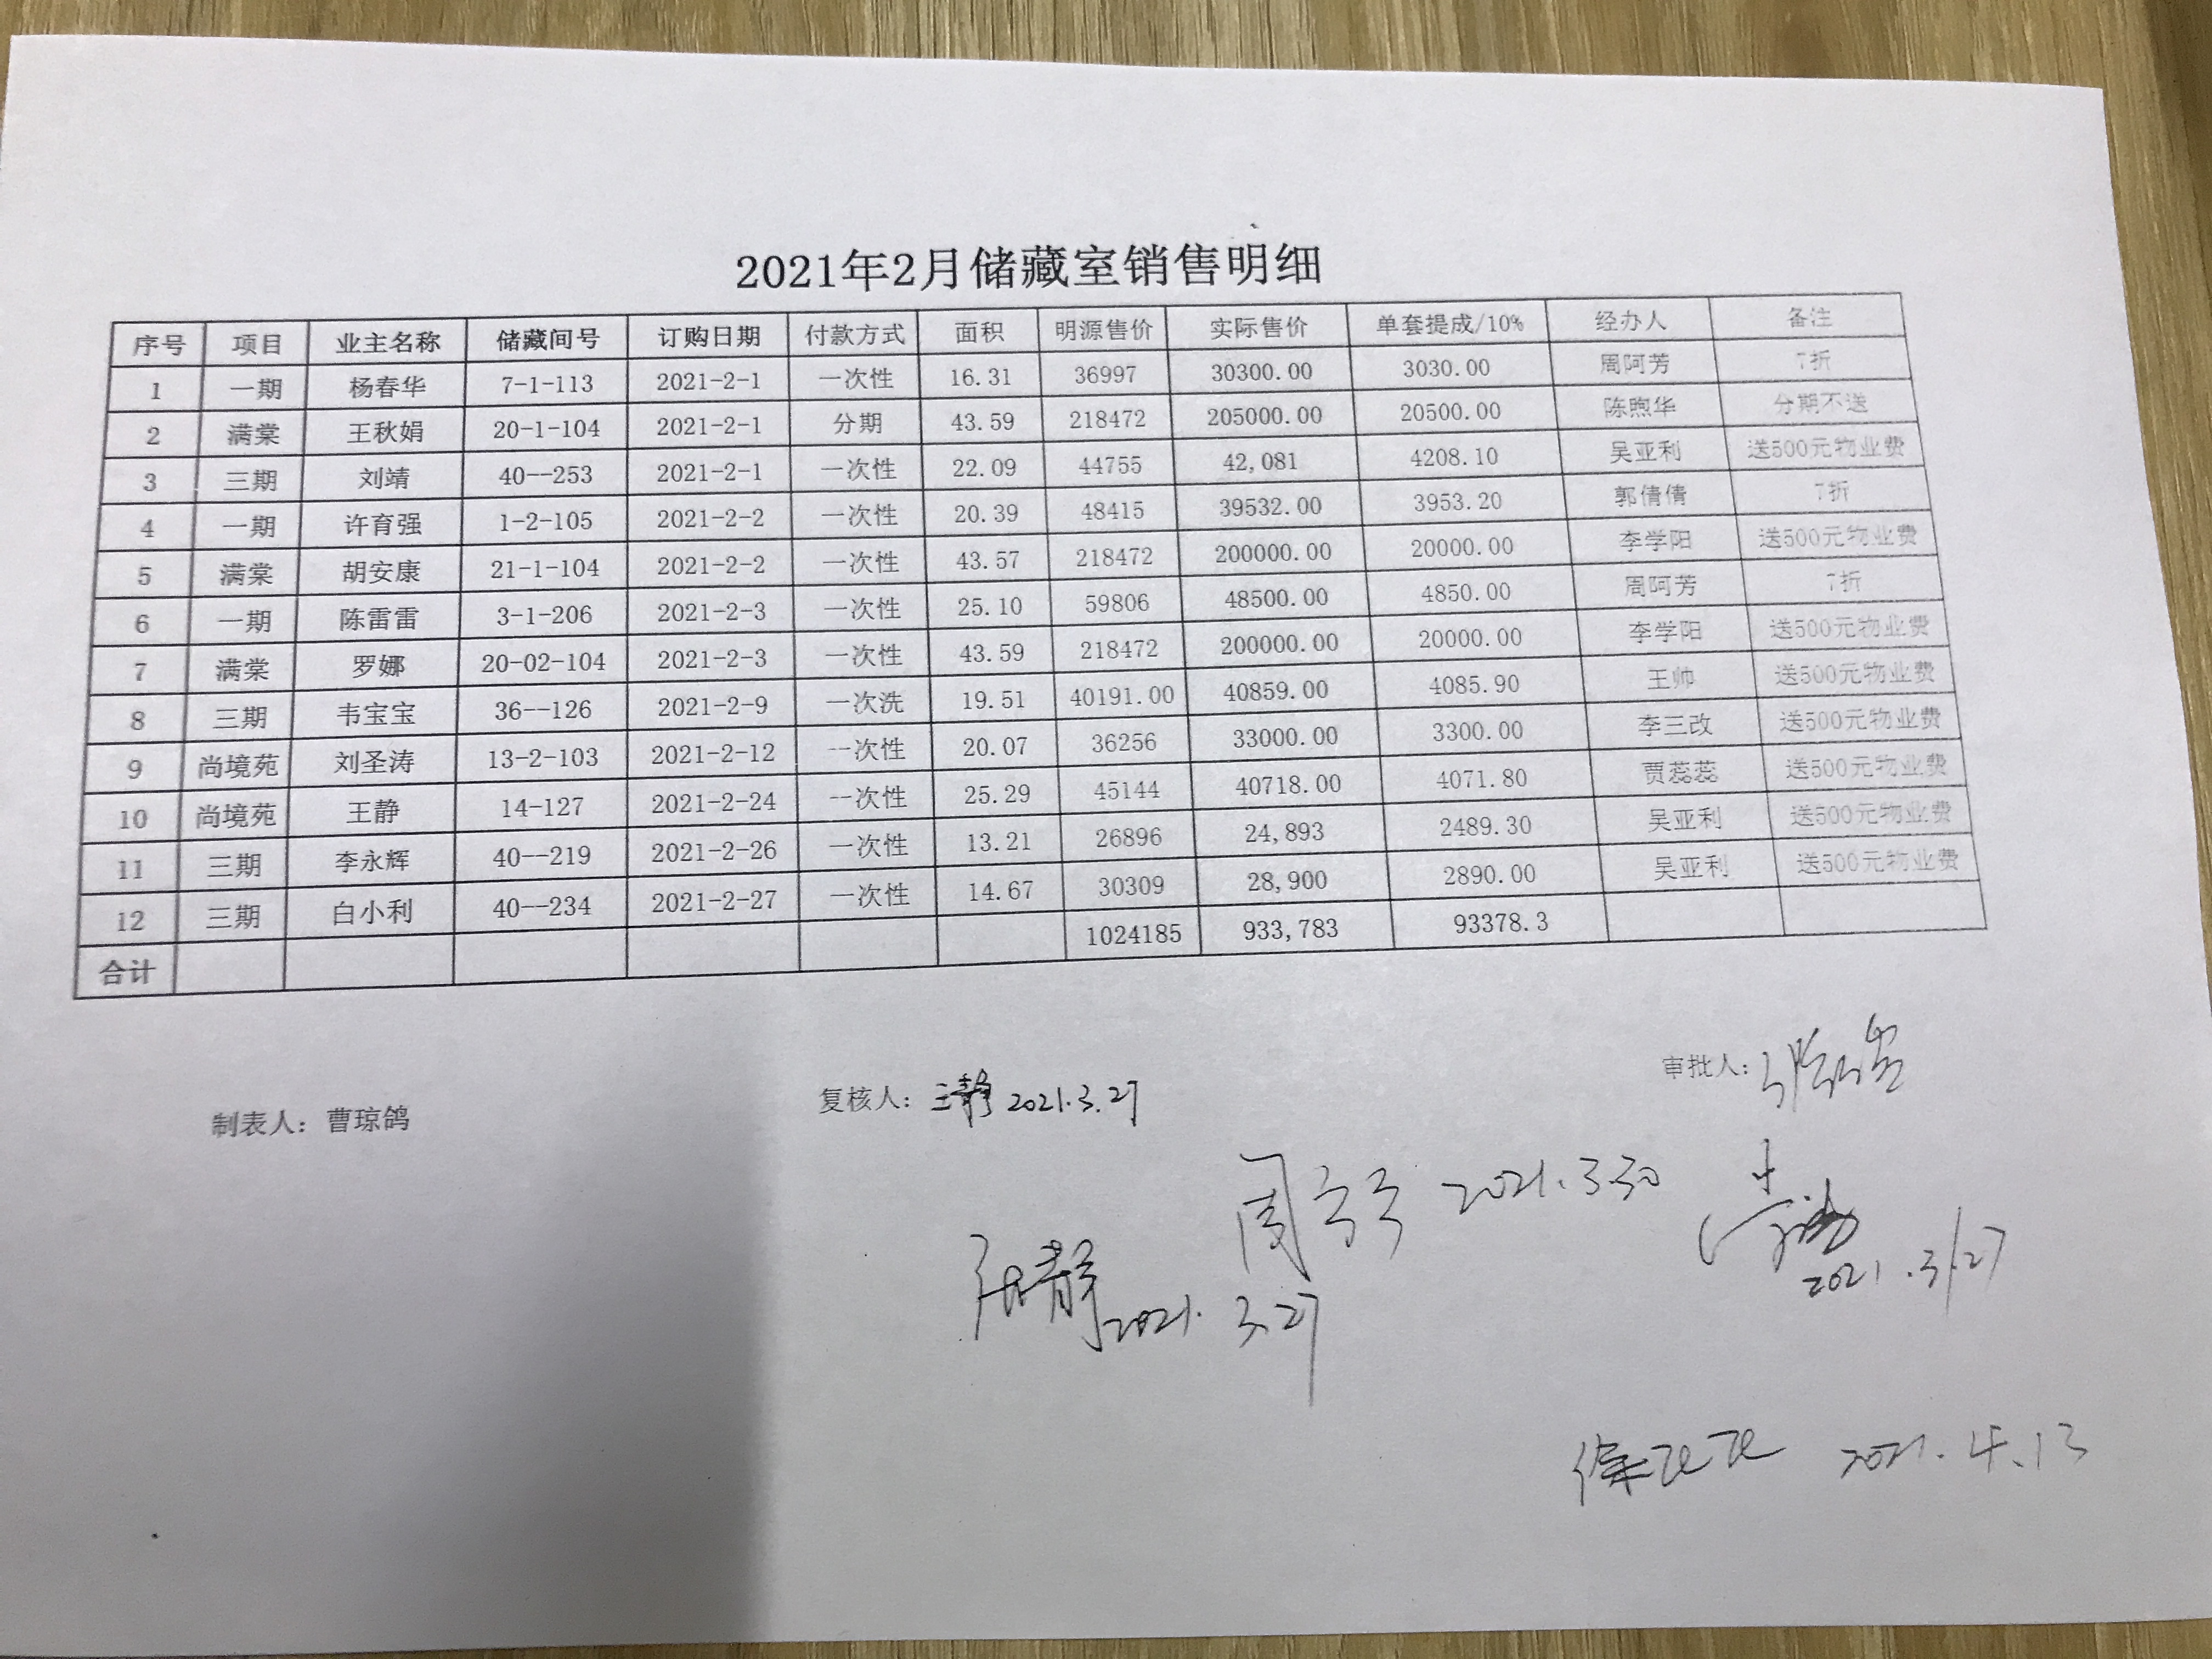 2021年2月储藏室销售明细
序号 项目 业主名称 储藏间号 订购日期 付款方式 面积 明源售价 实际售价 单套提成/10% 经办人 备注
1 一期 杨春华 7-1-113 2021-2-1 一次性 16.31 36997 30300.00 3030.00 周阿芳 7折
2 满棠 王秋娟 20-1-104 2021-2-1 分期 43.59 218472 205000.00 20500.00 陈煦华 分期不送
3 三期 刘靖 40--253 2021-2-1 一次性 22.09 44755 42,081 4208.10 吴亚利 送500元物业费
4 一期 许育强 1-2-105 2021-2-2 一次性 20.39 48415 39532.00 3953.20 郭倩倩 7折
5 满棠 胡安康 21-1-104 2021-2-2 一次性 43.57 218472 200000.00 20000.00 李学阳 送500元物业费
6 一期 陈雷雷 3-1-206 2021-2-3 一次性 25.10 59806 48500.00 4850.00 周阿芳 7折
7 满棠 罗娜 20-02-104 2021-2-3 一次性 43.59 218472 200000.00 20000.00 李学阳 送500元物业费
8 三期 韦宝宝 36--126 2021-2-9 一次洗 19.51 40191.00 40859.00 4085.90 王帅 送500元物业费
9 尚境苑 刘圣涛 13-2-103 2021-2-12 一次性 20.07 36256 33000.00 3300.00 李三改 送500元物业费
10 尚境苑 王静 14-127 2021-2-24 一次性 25.29 45144 40718.00 4071.80 贾蕊蕊 送500元物业费
11 三期 李永辉 40--219 2021-2-26 一次性 13.21 26896 24,893 2489.30 吴亚利 送500元物业费
12 三期 白小利 40--234 2021-2-27 一次性 14.67 30309 28,900 2890.00 吴亚利 送500元物业费
合计 1024185 933,783 93378.3
制表人：曹琼鸽 复核人：王静 2021.3.27 审批人：
2021.3.30
张静 2021.3.27 2021.3/27
2021.4.13